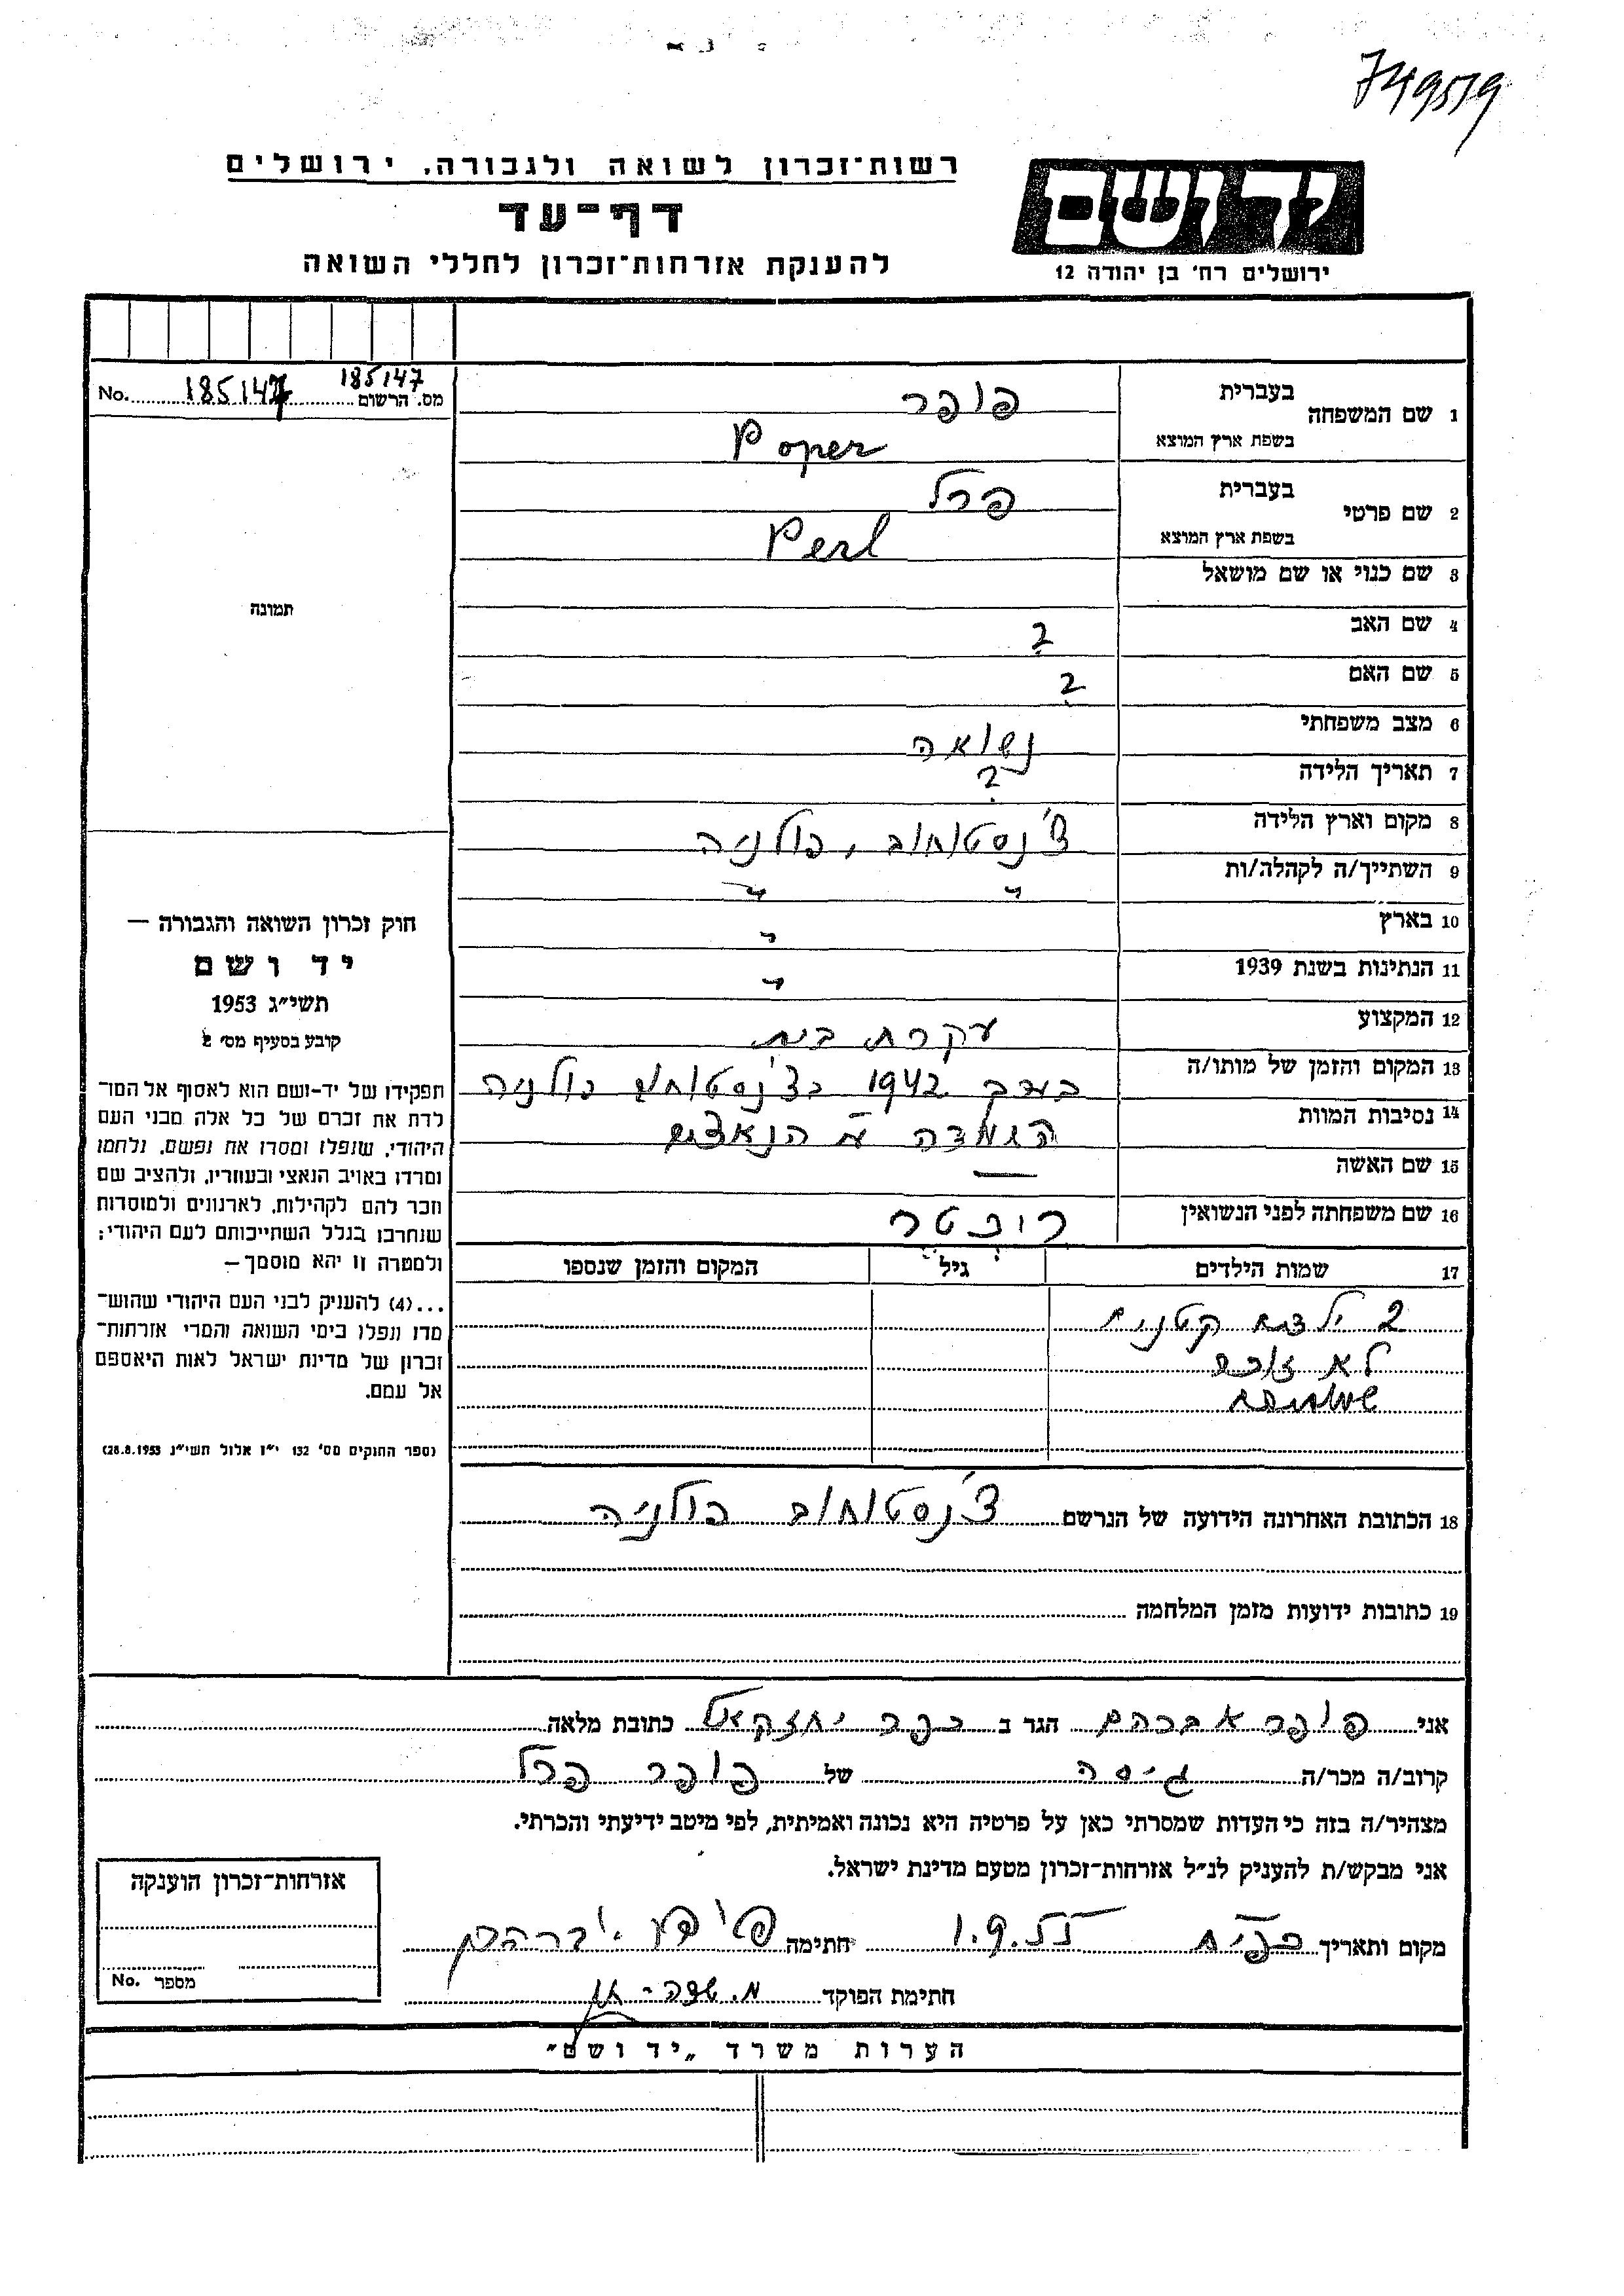 749579
רשות־זכרון לשואה ולגבורה. ירושלים
יד ושם
דף־עד
להענקת אזרחות־זכרון לחללי השואה
ירושלים רח' בן יהודה 12
No. 185147 מס. הרשום 185147
1 שם המשפחה בעברית פופר
בשפת ארץ המוצא Poper
2 שם פרטי בעברית פרל
בשפת ארץ המוצא Perl
3 שם כנוי או שם מושאל
תמונה
4 שם האב ?
5 שם האם ?
6 מצב משפחתי נשואה
7 תאריך הלידה ?
8 מקום וארץ הלידה צ'נסטוחוב, פולניה
9 השתייך/ה לקהלה/ות " "
10 בארץ "
11 הנתינות בשנת 1939 "
12 המקצוע עקרת בית
13 המקום והזמן של מותו/ה בערב 1942 בצ'נסטוחוב פולניה
14 נסיבות המוות הושמדה ע"י הנאצים
15 שם האשה —
16 שם משפחתה לפני הנשואין
17 שמות הילדים גיל המקום והזמן שנספו
2 ילדים קטנים
לא זוכר
שמותיהם
18 הכתובת האחרונה הידועה של הנרשם צ'נסטוחוב פולניה
19 כתובות ידועות מזמן המלחמה
חוק זכרון השואה והגבורה —
יד ושם
תשי״ג 1953
קובע בסעיף מס׳ 2
תפקידו של יד-ושם הוא לאסוף אל המו־
לדת את זכרם של כל אלה מבני העם
היהודי, שנפלו ומסרו את נפשם, נלחמו
ומרדו באויב הנאצי ובעוזריו, ולהציב שם
וזכר להם לקהילות, לארגונים ולמוסדות
שנחרבו בגלל השתייכותם לעם היהודי;
ולמטרה זו יהא מוסמך —
...(4) להעניק לבני העם היהודי שהוש־
מדו ונפלו בימי השואה והמרי אזרחות־
זכרון של מדינת ישראל לאות היאספם
אל עמם.
(ספר החוקים מס׳ 132 י״ז אלול תשי״ג 28.8.1953)
אני פופר אברהם הגר ב כפר יחזקאל כתובת מלאה
קרוב/ה מכר/ה גיסה של פופר פרל
מצהיר/ה בזה כי העדות שמסרתי כאן על פרטיה היא נכונה ואמיתית, לפי מיטב ידיעתי והכרתי.
אני מבקש/ת להעניק לנ״ל אזרחות־זכרון מטעם מדינת ישראל.
מקום ותאריך 1.9.55 חתימה
חתימת הפוקד
אזרחות־זכרון הוענקה
No. מספר
הערות משרד „יד ושם״